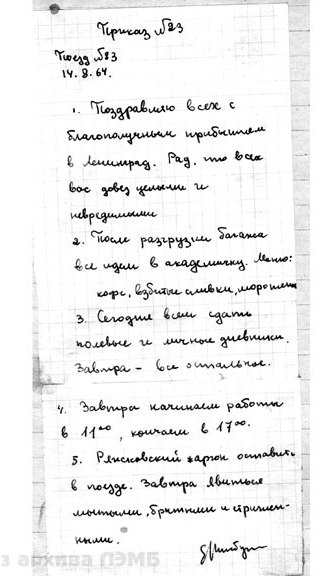 Приказ №23
Поезд №23
14.8.64.
1. Поздравляю всех с
благополучным прибытием
в Ленинград. Рад, что всех
вас довез целыми и
невредимыми
2. После разгрузки багажа
все идем в академичку. Меню:
кофе, взбитые сливки, мороженое
3. Сегодня всем сдать
полевые и личные дневники.
Завтра – все остальное.
4. Завтра начинаем работы
в 11⁰⁰, кончаем в 17⁰⁰.
5. Ряжсковский жаргон оставить
в поезде. Завтра явиться
мытыми, бритыми и стрижен-
ными.
з архива ЛЭМБ